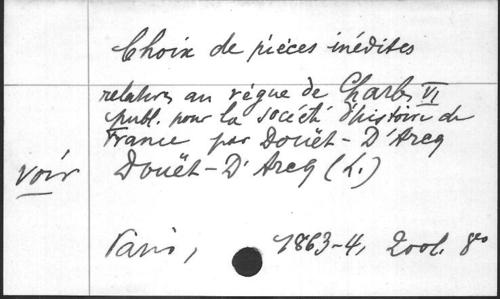 Choix de pièces inédites
relatives au règne de Charles VI
publ. pour la société d'histoire de
France par Douët-D'Arcq
voir Douët-D'Arcq (L.)
Paris, 1863-4, 2 vol. 8vo